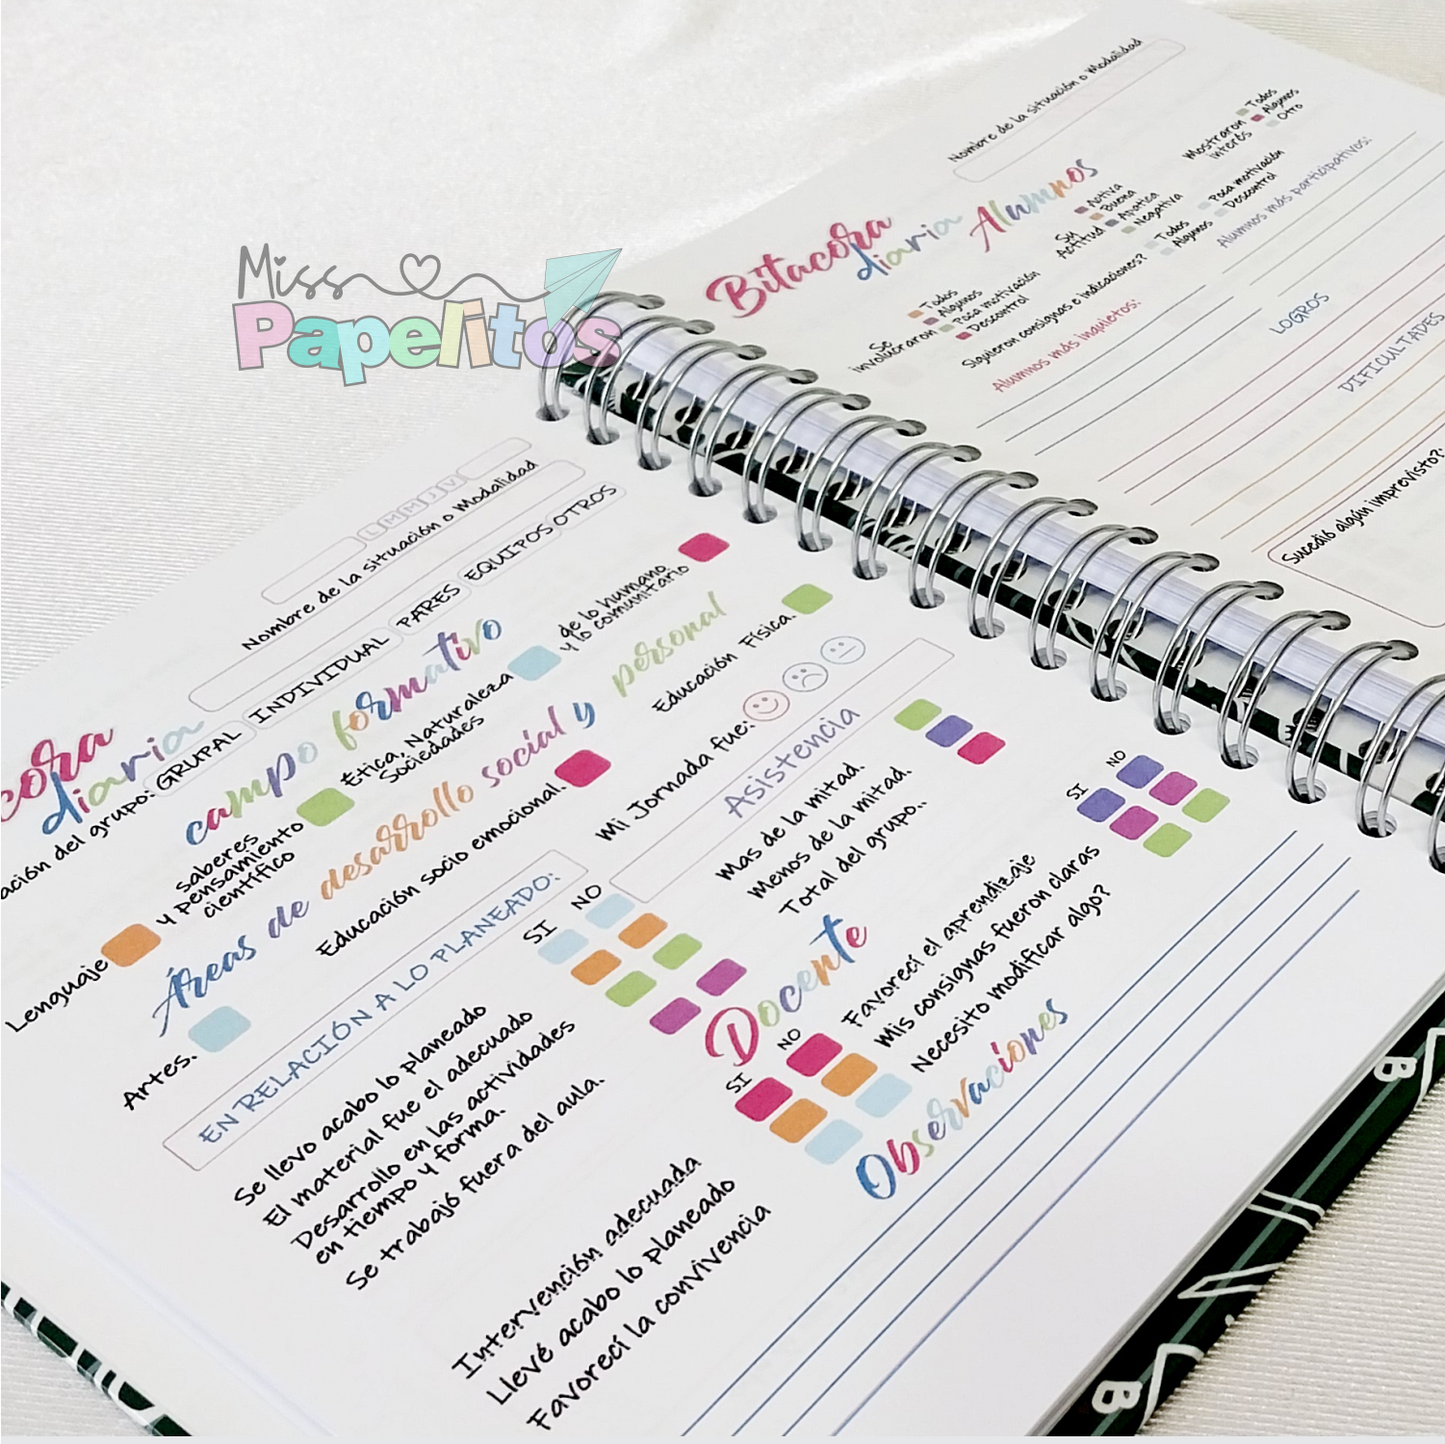 Miss
Papelitos
L M M J V
Nombre de la situación o Modalidad
diaria
GRUPAL INDIVIDUAL PARES EQUIPOS OTROS
campo formativo
Lenguaje
saberes
y pensamiento
científico
Ética, Naturaleza
Sociedades
de lo humano
y lo comunitario
Áreas de desarrollo social y personal
Artes.
Educación socio emocional.
Educación Física.
EN RELACIÓN A LO PLANEADO:
SI NO
Se llevo acabo lo planeado
El material fue el adecuado
Desarrollo en las actividades
en tiempo y forma.
Se trabajó fuera del aula.
Mi Jornada fue:
Asistencia
Mas de la mitad.
Menos de la mitad.
Total del grupo..
Docente
SI NO
Intervención adecuada
Llevé acabo lo planeado
Favorecí la convivencia
SI NO
Favorecí el aprendizaje
Mis consignas fueron claras
Necesito modificar algo?
Observaciones
Nombre de la situación o Modalidad
Bitacora
diaria Alumnos
Se
involucraron
Todos
Algunos
Poca motivación
Descontrol
Su
Actitud
Activa
Buena
Apatica
Negativa
Mostraron
interés
Todos
Algunos
Otro
Siguieron consignas e indicaciones?
Todos
Algunos
Poca motivación
Descontrol
Alumnos más inquietos:
Alumnos más participativos:
LOGROS
DIFICULTADES
Sucedió algún imprevisto?
B
B